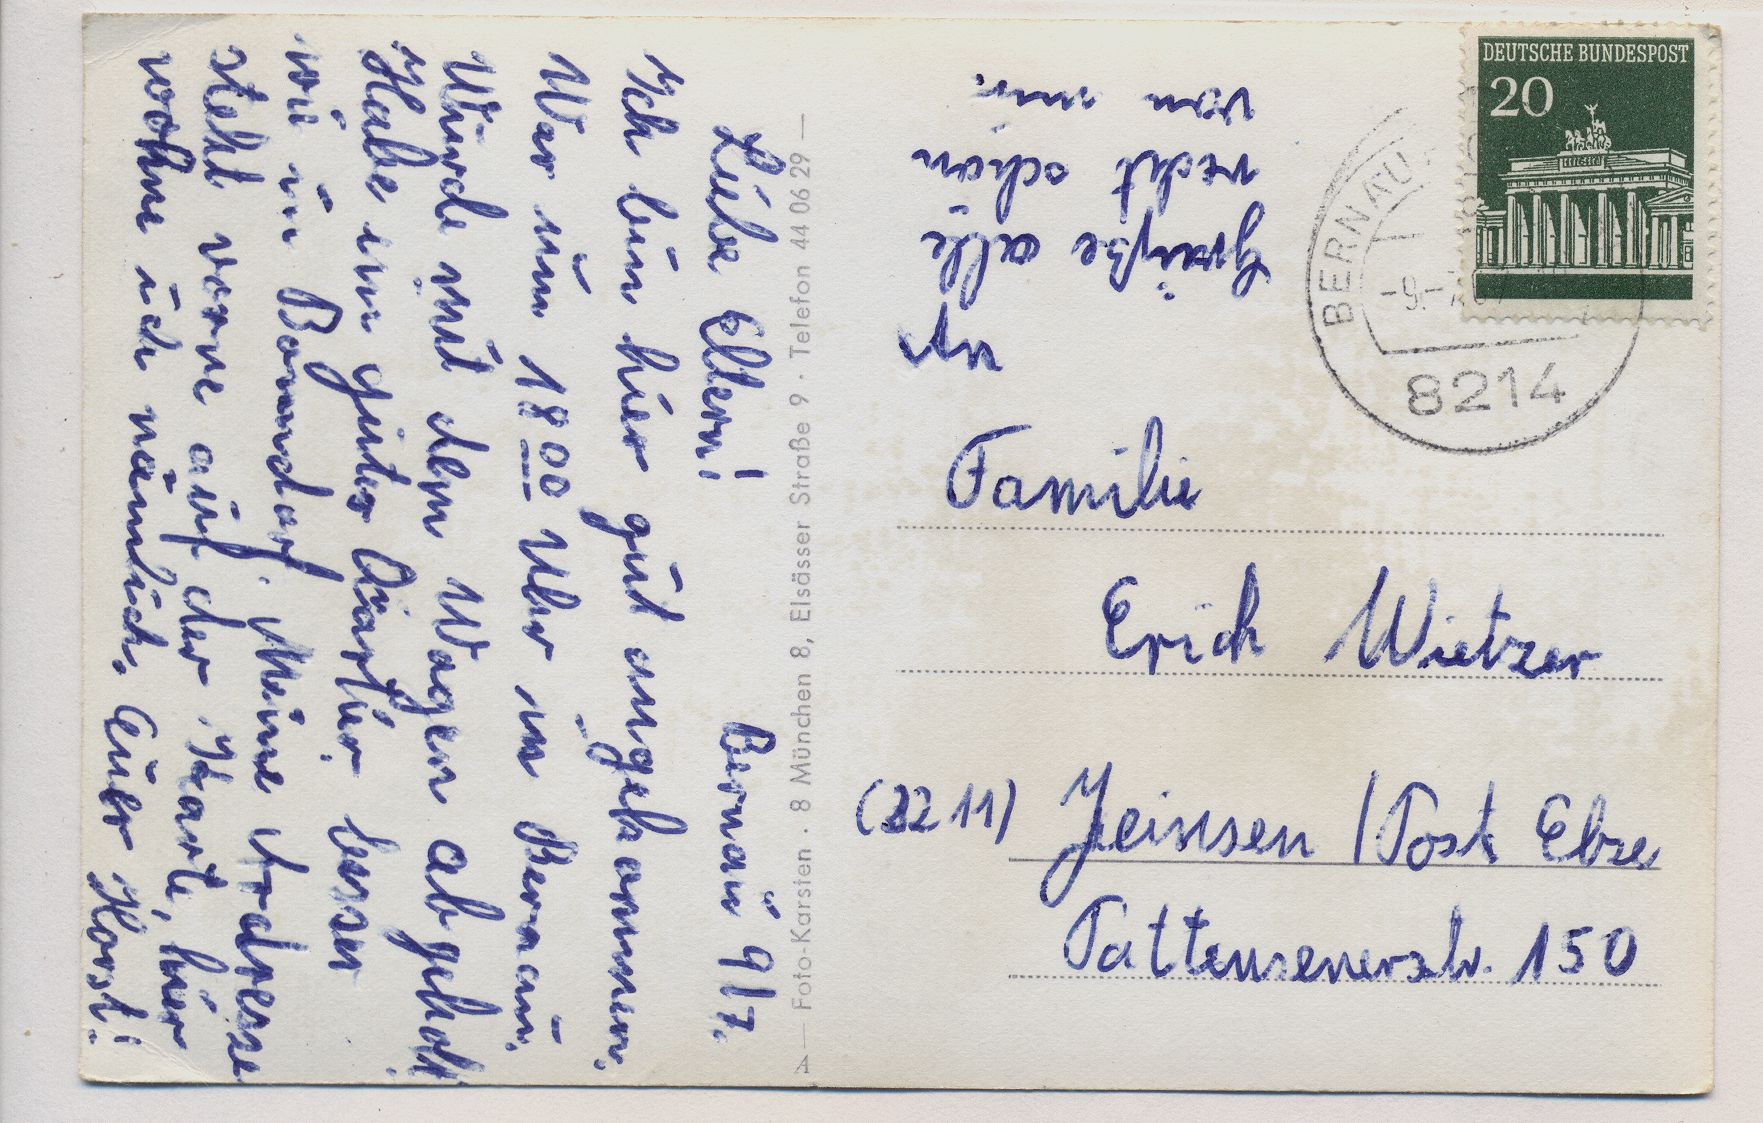 Bernau 9/7.
Liebe Eltern!
Ich bin hier gut angekommen.
War um 18 00 Uhr in Bernau.
Wurde mit dem Wagen abgeholt.
Habe ein gutes Quartier besser
wie in Bonndorf. Meine Adresse
steht vorne auf der Karte, hier
wohne ich nämlich. Euer Horst!
Grüße alle
recht schön
von mir.
A — Foto-Karsten · 8 München 8, Elsässer Straße 9 · Telefon 44 06 29 —
DEUTSCHE BUNDESPOST
20
BERNAU
-9.-7.67
8214
An
Familie
Erich Wietzer
(3211) Jeinsen / Post Elze
Pattensenerstr. 150